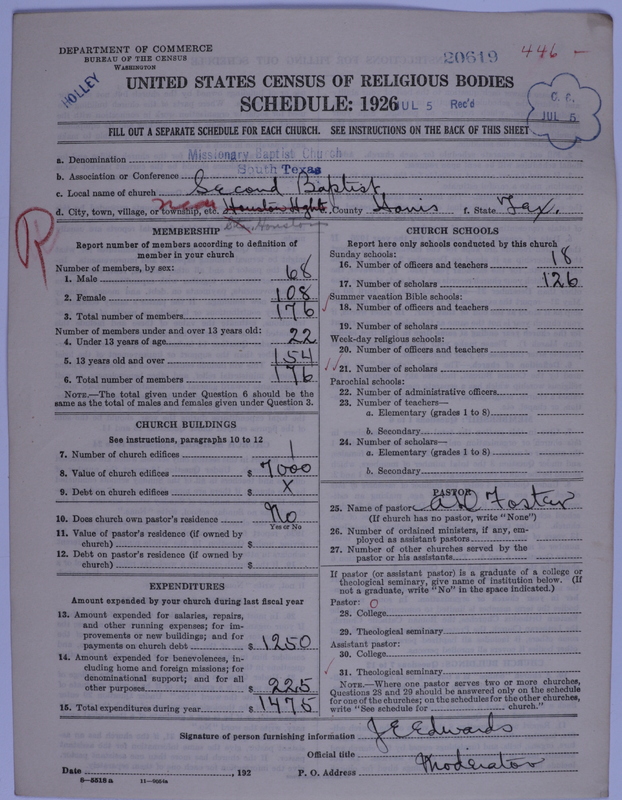 DEPARTMENT OF COMMERCE
BUREAU OF THE CENSUS
WASHINGTON
20619
446 –
HOLLEY
UNITED STATES CENSUS OF RELIGIOUS BODIES
SCHEDULE: 1926
JUL 5 Rec'd
C. S.
JUL 5
FILL OUT A SEPARATE SCHEDULE FOR EACH CHURCH. SEE INSTRUCTIONS ON THE BACK OF THIS SHEET
a. Denomination Missionary Baptist Church
b. Association or Conference South Texas
c. Local name of church Second Baptist
d. City, town, village, or township, etc. near Houston Hghts. County Harris f. State Tex.
Houston
R
MEMBERSHIP
Report number of members according to definition of member in your church
Number of members, by sex:
1. Male 68
2. Female 108
3. Total number of members 176
Number of members under and over 13 years old:
4. Under 13 years of age 22
5. 13 years old and over 154
6. Total number of members 176
NOTE.—The total given under Question 6 should be the same as the total of males and females given under Question 3.
CHURCH BUILDINGS
See instructions, paragraphs 10 to 12
7. Number of church edifices 1
8. Value of church edifices $ 7000
9. Debt on church edifices $ X
10. Does church own pastor's residence No
Yes or No
11. Value of pastor's residence (if owned by church) $
12. Debt on pastor's residence (if owned by church) $
EXPENDITURES
Amount expended by your church during last fiscal year
13. Amount expended for salaries, repairs, and other running expenses; for improvements or new buildings; and for payments on church debt $ 1250
14. Amount expended for benevolences, including home and foreign missions; for denominational support; and for all other purposes $ 225
15. Total expenditures during year $ 1475
CHURCH SCHOOLS
Report here only schools conducted by this church
Sunday schools:
16. Number of officers and teachers 18
17. Number of scholars 126
Summer vacation Bible schools:
18. Number of officers and teachers
19. Number of scholars
Week-day religious schools:
20. Number of officers and teachers
21. Number of scholars
Parochial schools:
22. Number of administrative officers
23. Number of teachers—
a. Elementary (grades 1 to 8)
b. Secondary
24. Number of scholars—
a. Elementary (grades 1 to 8)
b. Secondary
PASTOR
25. Name of pastor Foster
(If church has no pastor, write "None")
26. Number of ordained ministers, if any, employed as assistant pastors
27. Number of other churches served by the pastor or his assistants
If pastor (or assistant pastor) is a graduate of a college or theological seminary, give name of institution below. (If not a graduate, write "No" in the space indicated.)
Pastor: O
28. College
29. Theological seminary
Assistant pastor:
30. College
31. Theological seminary
NOTE.—Where one pastor serves two or more churches, Questions 28 and 29 should be answered only on the schedule for one of the churches; on the schedules for the other churches, write "See schedule for church."
Signature of person furnishing information J E Edwards
Official title Moderator
Date , 192 P. O. Address
8—5518a 11—9664a